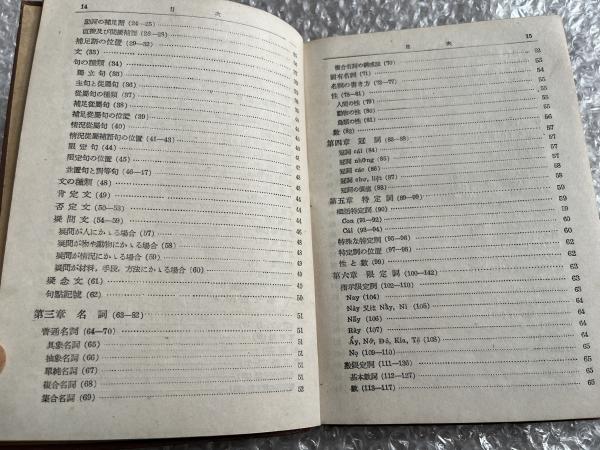 14 目次
動詞の補足語 (24—25)
直接及び間接補語 (26—28)
補足語の位置 (29—32)
文 (33)
句の種類 (34)
獨立句 (35)
主句と從屬句 (36)
從屬句の種類 (37)
補足從屬句 (38)
補足從屬句の位置 (39)
情況從屬句 (40)
情況從屬補語句の位置 (41—43)
限定句 (44)
限定句の位置 (45)
並置句と對等句 (46—47)
文の種類 (48)
肯定文 (49)
否定文 (50—53)
疑問文 (54—59)
疑問が人にかゝる場合 (57)
疑問が物や動物にかゝる場合 (58)
疑問が情況にかゝる場合 (59)
疑問が材料、手段、方法にかゝる場合 (60)
疑念文 (61)
句點記號 (62)
第三章 名詞 (63—82) 51
普通名詞 (64—70) 51
具象名詞 (65) 51
抽象名詞 (66) 51
單純名詞 (67) 51
複合名詞 (68) 51
集合名詞 (69) 52
目次 15
複合名詞の構成法 (70) 52
固有名詞 (71) 53
名詞の書き方 (72—77) 53
性 (78—81) 54
人間の性 55
動物の性 55
鳥類の性 56
數 (82)
第四章 冠詞 (83—88) 57
冠詞 cái (84) 57
冠詞 những 57
冠詞 các (86) 58
冠詞 chư, liệt (87) 58
冠詞の價値 (88) 58
第五章 特定詞 (89—99) 59
Con (91—92) 59
Cái (93—94) 60
特殊な特定詞 (95—96) 60
特定詞の位置 (97—98) 62
性と數 (99) 62
第六章 限定詞 (100—142) 63
指示限定詞 (102—110) 63
Nay (104) 63
Này 又は Nầy, Ni (105) 63
Nãy (106) 64
Rày (107) 64
Ấy, Nớ, Đó, Kia, Tê (108) 64
Nọ (109—110) 64
數限定詞 (111—136) 65
基本數詞 (112—127) 65
數 (113—117) 65